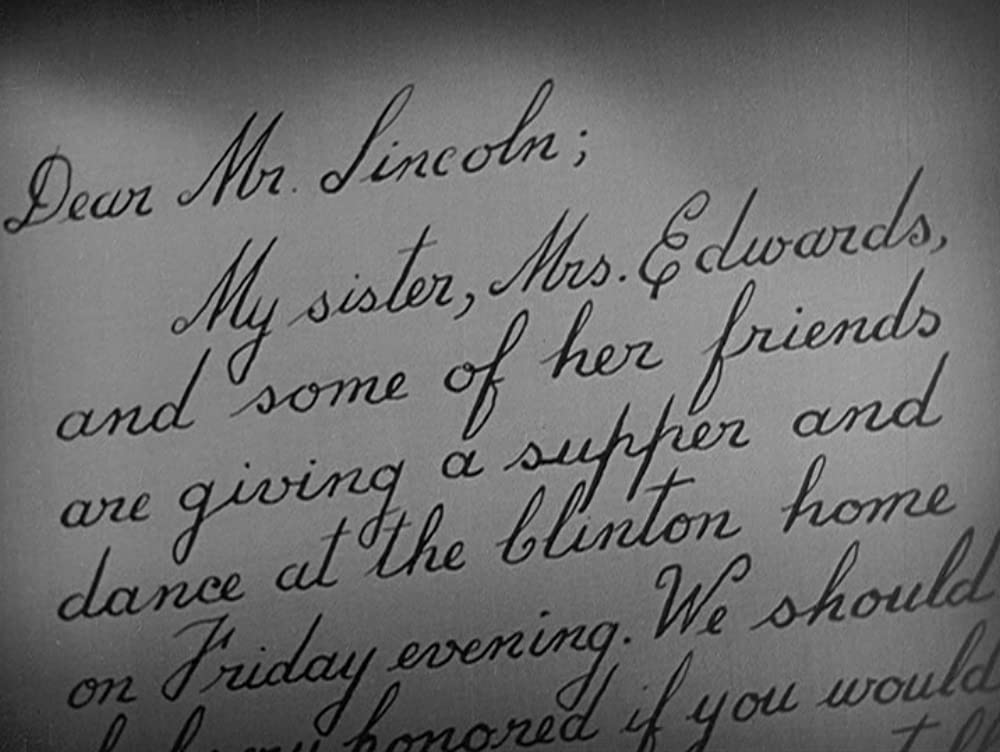 Dear Mr. Lincoln;
My sister, Mrs. Edwards,
and some of her friends
are giving a supper and
dance at the Clinton home
on Friday evening. We should
honored if you would